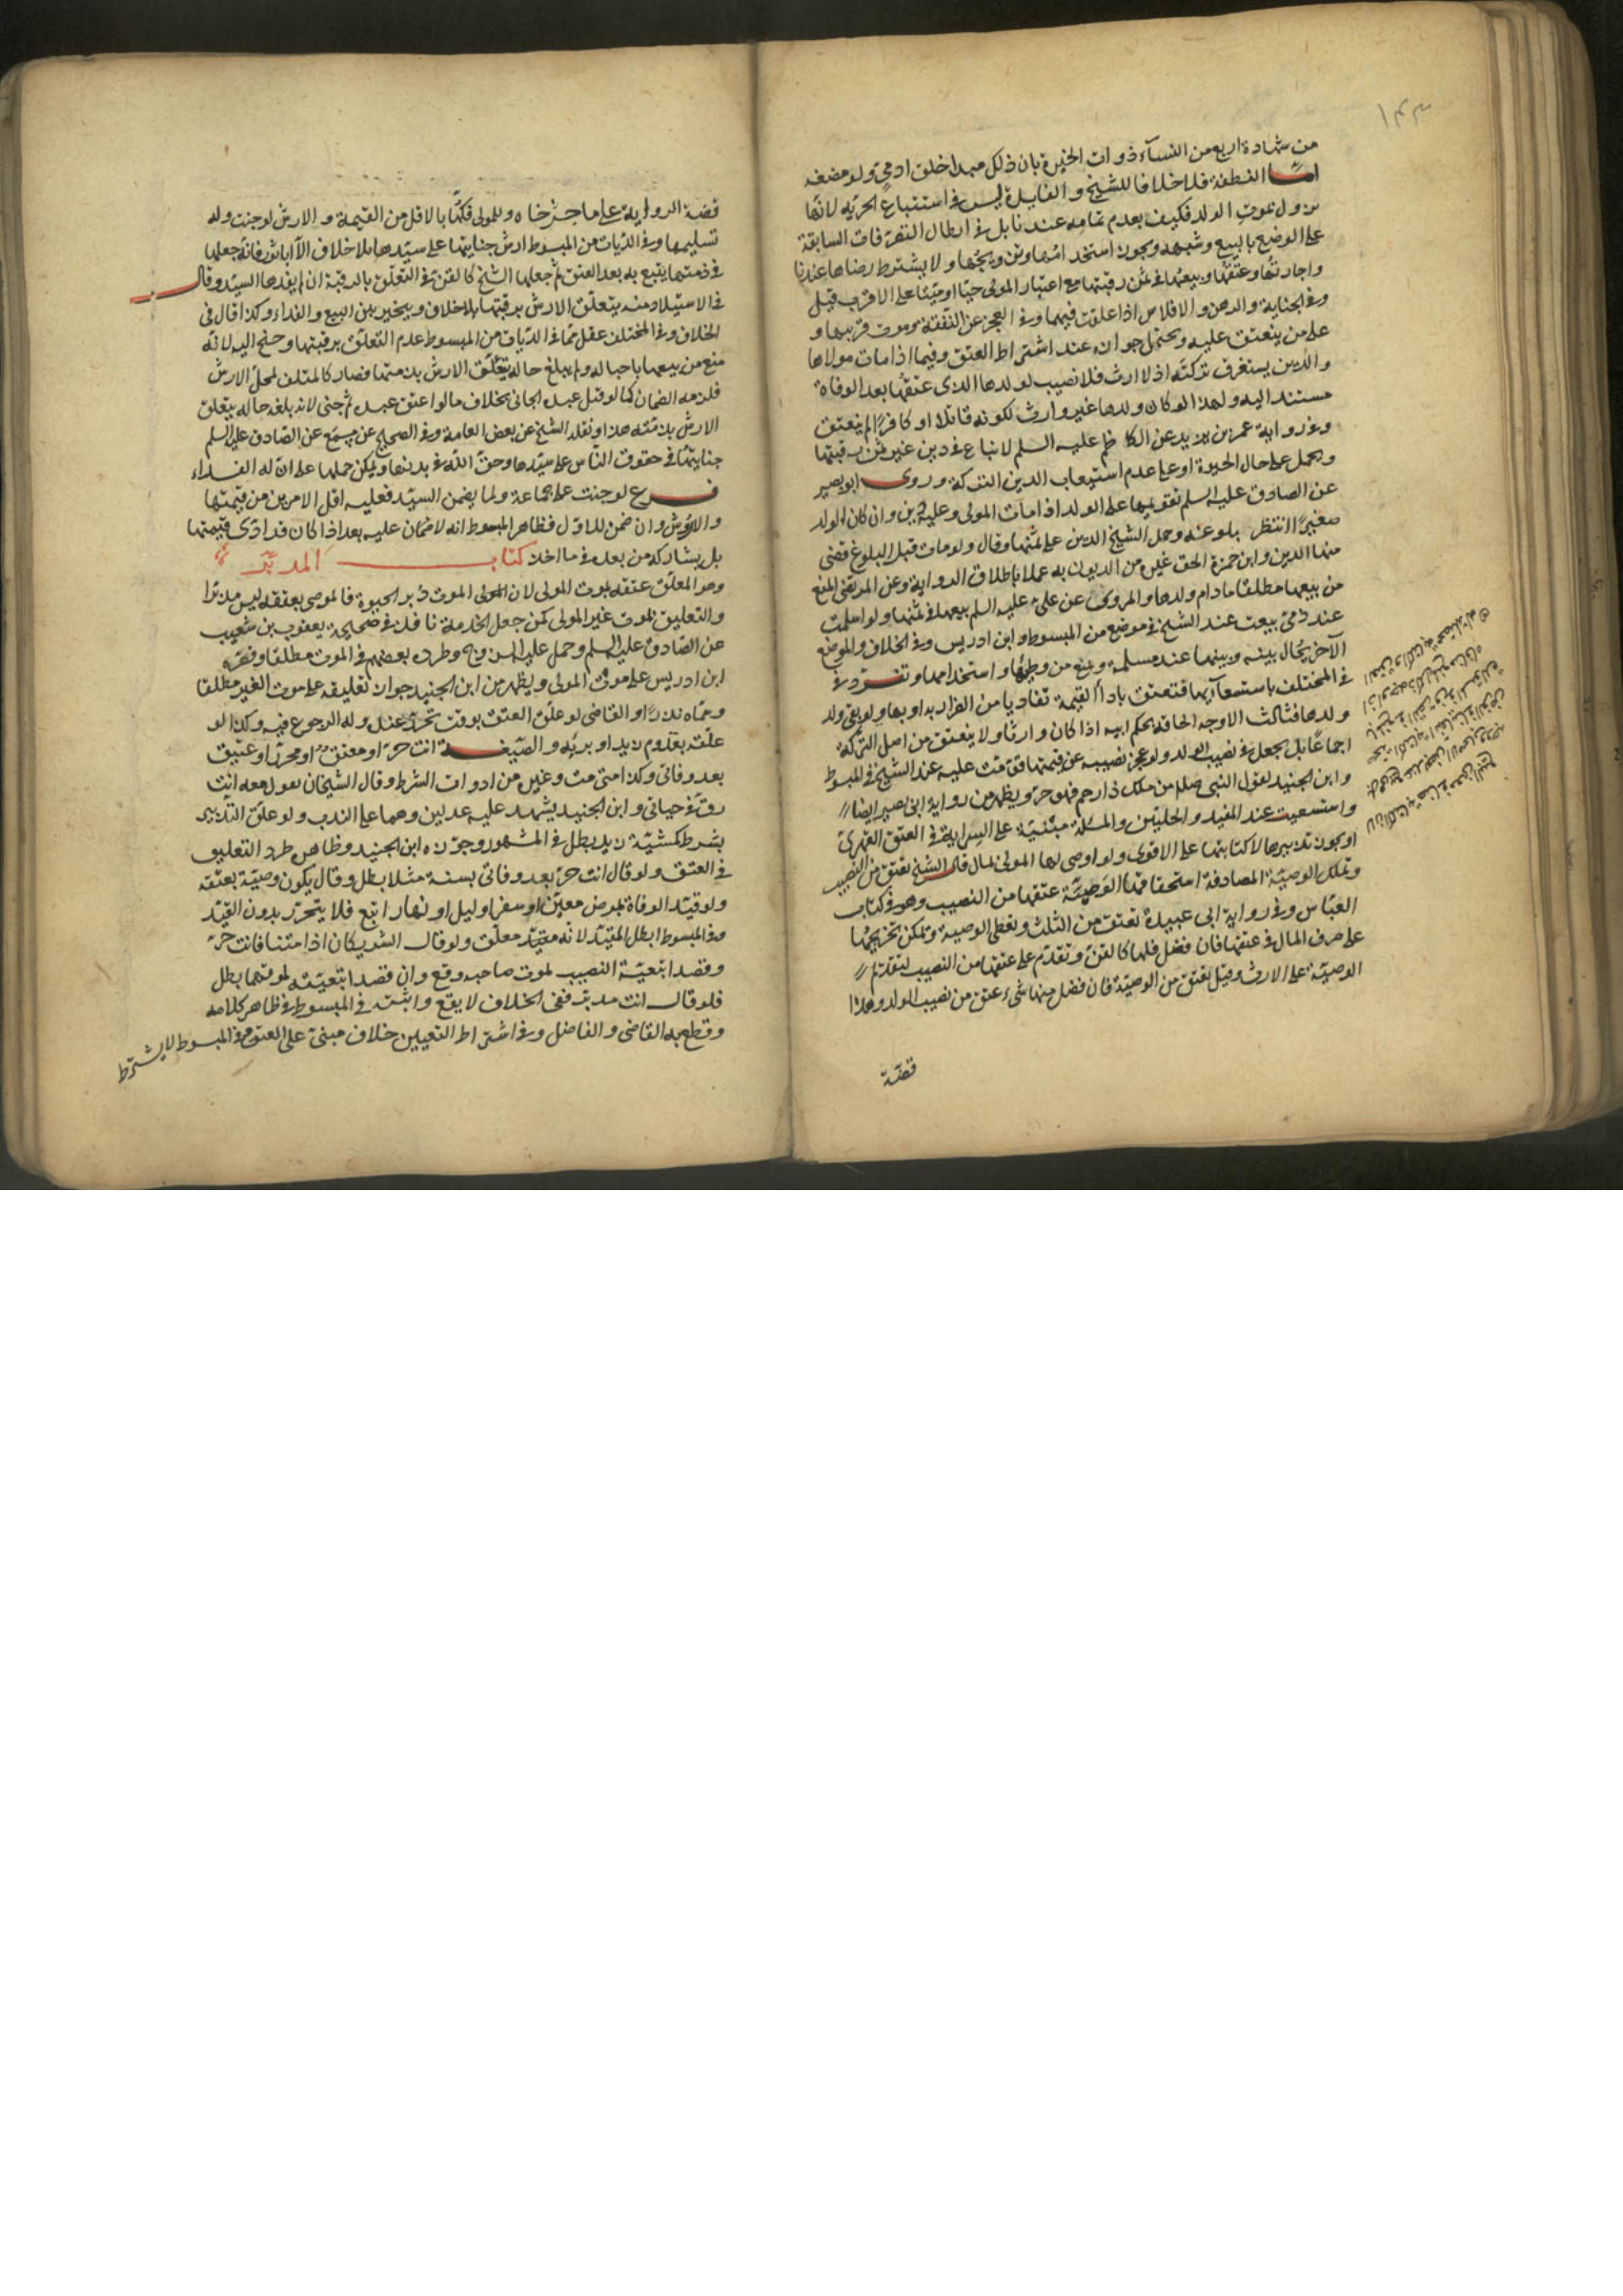 ١٤٣
من شهادة اربع من النسآء ذوات الخبرة بان ذلك مبدا خلق ادمي ولو مضغه
اما النطفة فلا خلافا للشيخ و الفايدة ليس في استتباع الحريه لانها
تزول بموت الولد فكيف بعدم تمامه عندنا بل في ابطال التصرفات السابقة
على الوضع بالبيع وشبهه ويجوز استخدامها وتزويجها ولا يشترط رضاها عندنا
واجارتها وعتقها وبيعها في ثمن رقبتها مع اعتبار المولى حيا او ميتا على الاقرب قيل
وفي الجناية والرهن و الافلاس اذا علقت فيهما وفي العجز عن النفقة وموت قريبها و
على من ينعتق عليه ويحتمل جوازه عند اشتراط العتق وفيما اذا مات مولاها
والدين يستغرق تركته اذ لا ارث فلا نصيب لولدها الذى عتقها بعد الوفاة
مستند اليه ولهذا لو كان ولدها غير وارث لكونه قاتلا او كافرا لم ينعتق
وفي رواية عمر بن يزيد عن الكاظم عليه السلم لا تباع في دين غير ثمن رقبتها
ويحمل على حال الحيوة او على عدم استيعاب الدين التركة وروى ابو بصير
عن الصادق عليه السلم تقويمها على الولد اذا مات المولى وعليه دين وان كان الولد
صغيرا انتظر بلوغه وحمل الشيخ الدين على ثمنها وقال ولو مات قبل البلوغ قضى
منها الدين وابن حمزة الحق غيره من الديون به عملا باطلاق الرواية وعن المرتضى المنع
من بيعها مطلقا مادام ولدها والمروى عن على عليه السلم بيعها في ثمنها ولو اسلمت
عند ذمي بيعت عند الشيخ في موضع من المبسوط وابن ادريس وفي الخلاف والموضع
الآخر يحال بينه وبينها عند مسلمة ويمنع من وطيها و استخدامها وتفرد في
في المختلف باستسعآيها فتعتق باداء القيمة تفاديا من الضرار به او بها ولو بقى ولد
ولدها فثالث الاوجه الحاقه بحكم ابيه اذا كان وارثا ولا ينعتق من اصل التركة
اجماعا بل يجعل في نصيب الولد ولو عجز نصيبه عن قيمتها قومت عليه عند الشيخ في المبسوط
وابن الجنيد لقول النبى صلعم من ملك ذا رحم فهو حر ويظهر من رواية ابى بصير ايضا
واستسعيت عند المفيد و الحليين والمسئلة مبنية على السراية في العتق القهرى
او بجوز تدبيرها لا كتابتها على الاقوى ولو اوصى لها المولى بمال قال الشيخ تعتق من النصيب
وتملك الوصية المصادفة استحقاقها الوصية عتقها من النصيب وهو في كتاب
العباس وفي رواية ابى عبيدة تعتق من الثلث وتعطى الوصية ويمكن تخريجها
على صرف المال في عتقها فان فضل فلها كالقن وتقدم على عتقها من النصيب لتقدم
الوصية على الارث وقيل تعتق من الوصية فان فضل منها شىء عتق من نصيب الولد وهذا
قضية
قضة الرواية على ما اخترناه وللمولى فكها بالاقل من القيمة و الارش لو جنت وله
تسليمها وفي الديات من المبسوط ارش جنايتها على سيدها بلا خلاف الا ابا ثور فانه جعلها
في ذمتها يتبع به بعد العتق ثم جعلها الشيخ كالقن في التعلق بالرقبة ان لم يفدها السيد وقال
في الاستيلاد منه يتعلق الارش برقبتها بلا خلاف ويتخير بين البيع و الفداء وكذا قال في
الخلاف وفي المختلف عقل عما في الديات من المبسوط عدم التعلق برقبتها وجنح اليه لانه
منع من بيعها باحباله ولم يبلغ حاله يتعلق الارش بذمتها فصار كالمتلف لمحل الارش
فلزمه الضمان كما لو قتل عبده الجانى بخلاف ما لو اعتق عبده ثم جنى لانه بلغه حاله يتعلق
الارش بذمته هذا ونقله الشيخ عن بعض العامة وفي الصحيح عن مسمع عن الصادق عليه السلم
جنايتها في حقوق الناس على سيدها وحق الله في بدنها ويمكن حملها على ان له الفداء
فرع لو جنت على جماعة ولما يضمن السيد فعليه اقل الامرين من قيمتها
والاروش وان ضمن للاول فظاهر المبسوط انه لا ضمان عليه بعد اذا كان قد ادى قيمتها
بل يشاركه من بعده في ما اخذ كتاب المدبر
وهو المعلق عتقه بموت المولى لان المولى الموت دبر الحيوة فالموصى بعتقه ليس مدبرا
والتعليق بموت غير المولى كمن جعل الخدمة نافذ في صحيحة يعقوب بن شعيب
عن الصادق عليه السلم وحمل عليه الزوج وطرده بعضهم في الموت مطلقا وقصره
ابن ادريس على موت المولى ويظهر من ابن الجنيد جواز تعليقه على موت الغير مطلقا
وسماه نذرا والقاضى لو علق العتق بوقت تحرر عنده وله الرجوع فيه وكذا لو
علقه بقدوم زيد او برئه و الصيغة انت حر او معتق او محرر او عتيق
بعد وفاتى وكذا متى مت وغيره من ادوات الشرط وقال الشيخان يقول معه انت
رق في حياتى وابن الجنيد يشهد عليه عدلين وهما على الندب ولو علق التدبير
بشرط كمشية زيد بطل في المشهور وجوزه ابن الجنيد وظاهره طرد التعليق
في العتق ولو قال انت حر بعد وفاتى بسنة مثلا بطل وقال يكون وصية بعتقه
ولو قيد الوفاة بمرض معين او سفر او ليل او نهار اتبع فلا يتحرر بدون القيد
وفي المبسوط ابطل المقيد لانه مقيد معلق ولو قال الشريكان اذا متنا فانت حر
وقصدا تبعية النصيب لموت صاحبه وقع وان قصدا تبعيته لموتهما بطل
فلو قال انت مدبر ففى الخلاف لا يقع واثبته في المبسوط في ظاهر كلامه
وقطع به القاضى و الفاضل وفي اشتراط التعيين خلاف مبنى على العتق وفي المبسوط لا يشترط